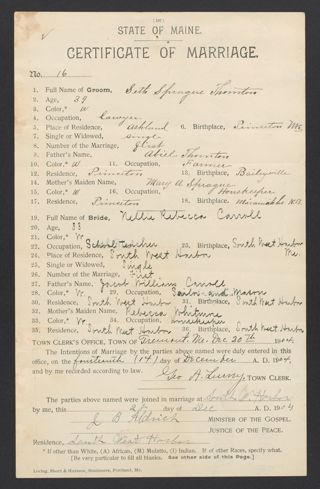 STATE OF MAINE.
CERTIFICATE OF MARRIAGE.
No. 16
1. Full Name of Groom, Seth Sprague Thornton
2. Age, 39
3. Color,* W
4. Occupation, Lawyer
5. Place of Residence, Ashland 6. Birthplace, Princeton Me.
7. Single or Widowed, single
8. Number of the Marriage, first
9. Father's Name, Abiel Thornton
10. Color,* W 11. Occupation, Farmer
12. Residence, Princeton 13. Birthplace, Baileyville
14. Mother's Maiden Name, Mary A Sprague
15. Color,* W 16. Occupation, Housekeeper
17. Residence, Princeton 18. Birthplace, N.B.
19. Full Name of Bride, Nellie Rebecca Carroll
20. Age, 33
21. Color,* W.
22. Occupation, School teacher 23. Birthplace, South West Harbor Me.
24. Place of Residence, South West Harbor
25. Single or Widowed, Single
26. Number of the Marriage, First
27. Father's Name, Jacob William Carroll
28. Color,* W. 29. Occupation, and Mason
30. Residence, South West Harbor 31. Birthplace, South West Harbor
32. Mother's Maiden Name, Rebecca Whitmore
33. Color,* W. 34. Occupation, Housekeeper
35. Residence, South West Harbor 36. Birthplace, South West Harbor
TOWN CLERK'S OFFICE, TOWN OF Tremont, Me. Dec 30th 1904.
The Intentions of Marriage by the parties above named were duly entered in this
office, on the fourteenth 14 day of December A. D. 1904,
and by me recorded according to law.
Geo A. TOWN CLERK.
The parties above named were joined in marriage at South W. Harbor
by me, this day of Dec A. D. 1904
J B Aldrich MINISTER OF THE GOSPEL.
JUSTICE OF THE PEACE.
Residence, South West Harbor
* If other than White, (A) African, (M) Mulatto, (I) Indian. If of other Races, specify what.
[Be very particular to fill all blanks. See other side of this Page.]
Loring, Short & Harmon, Stationers, Portland, Me.